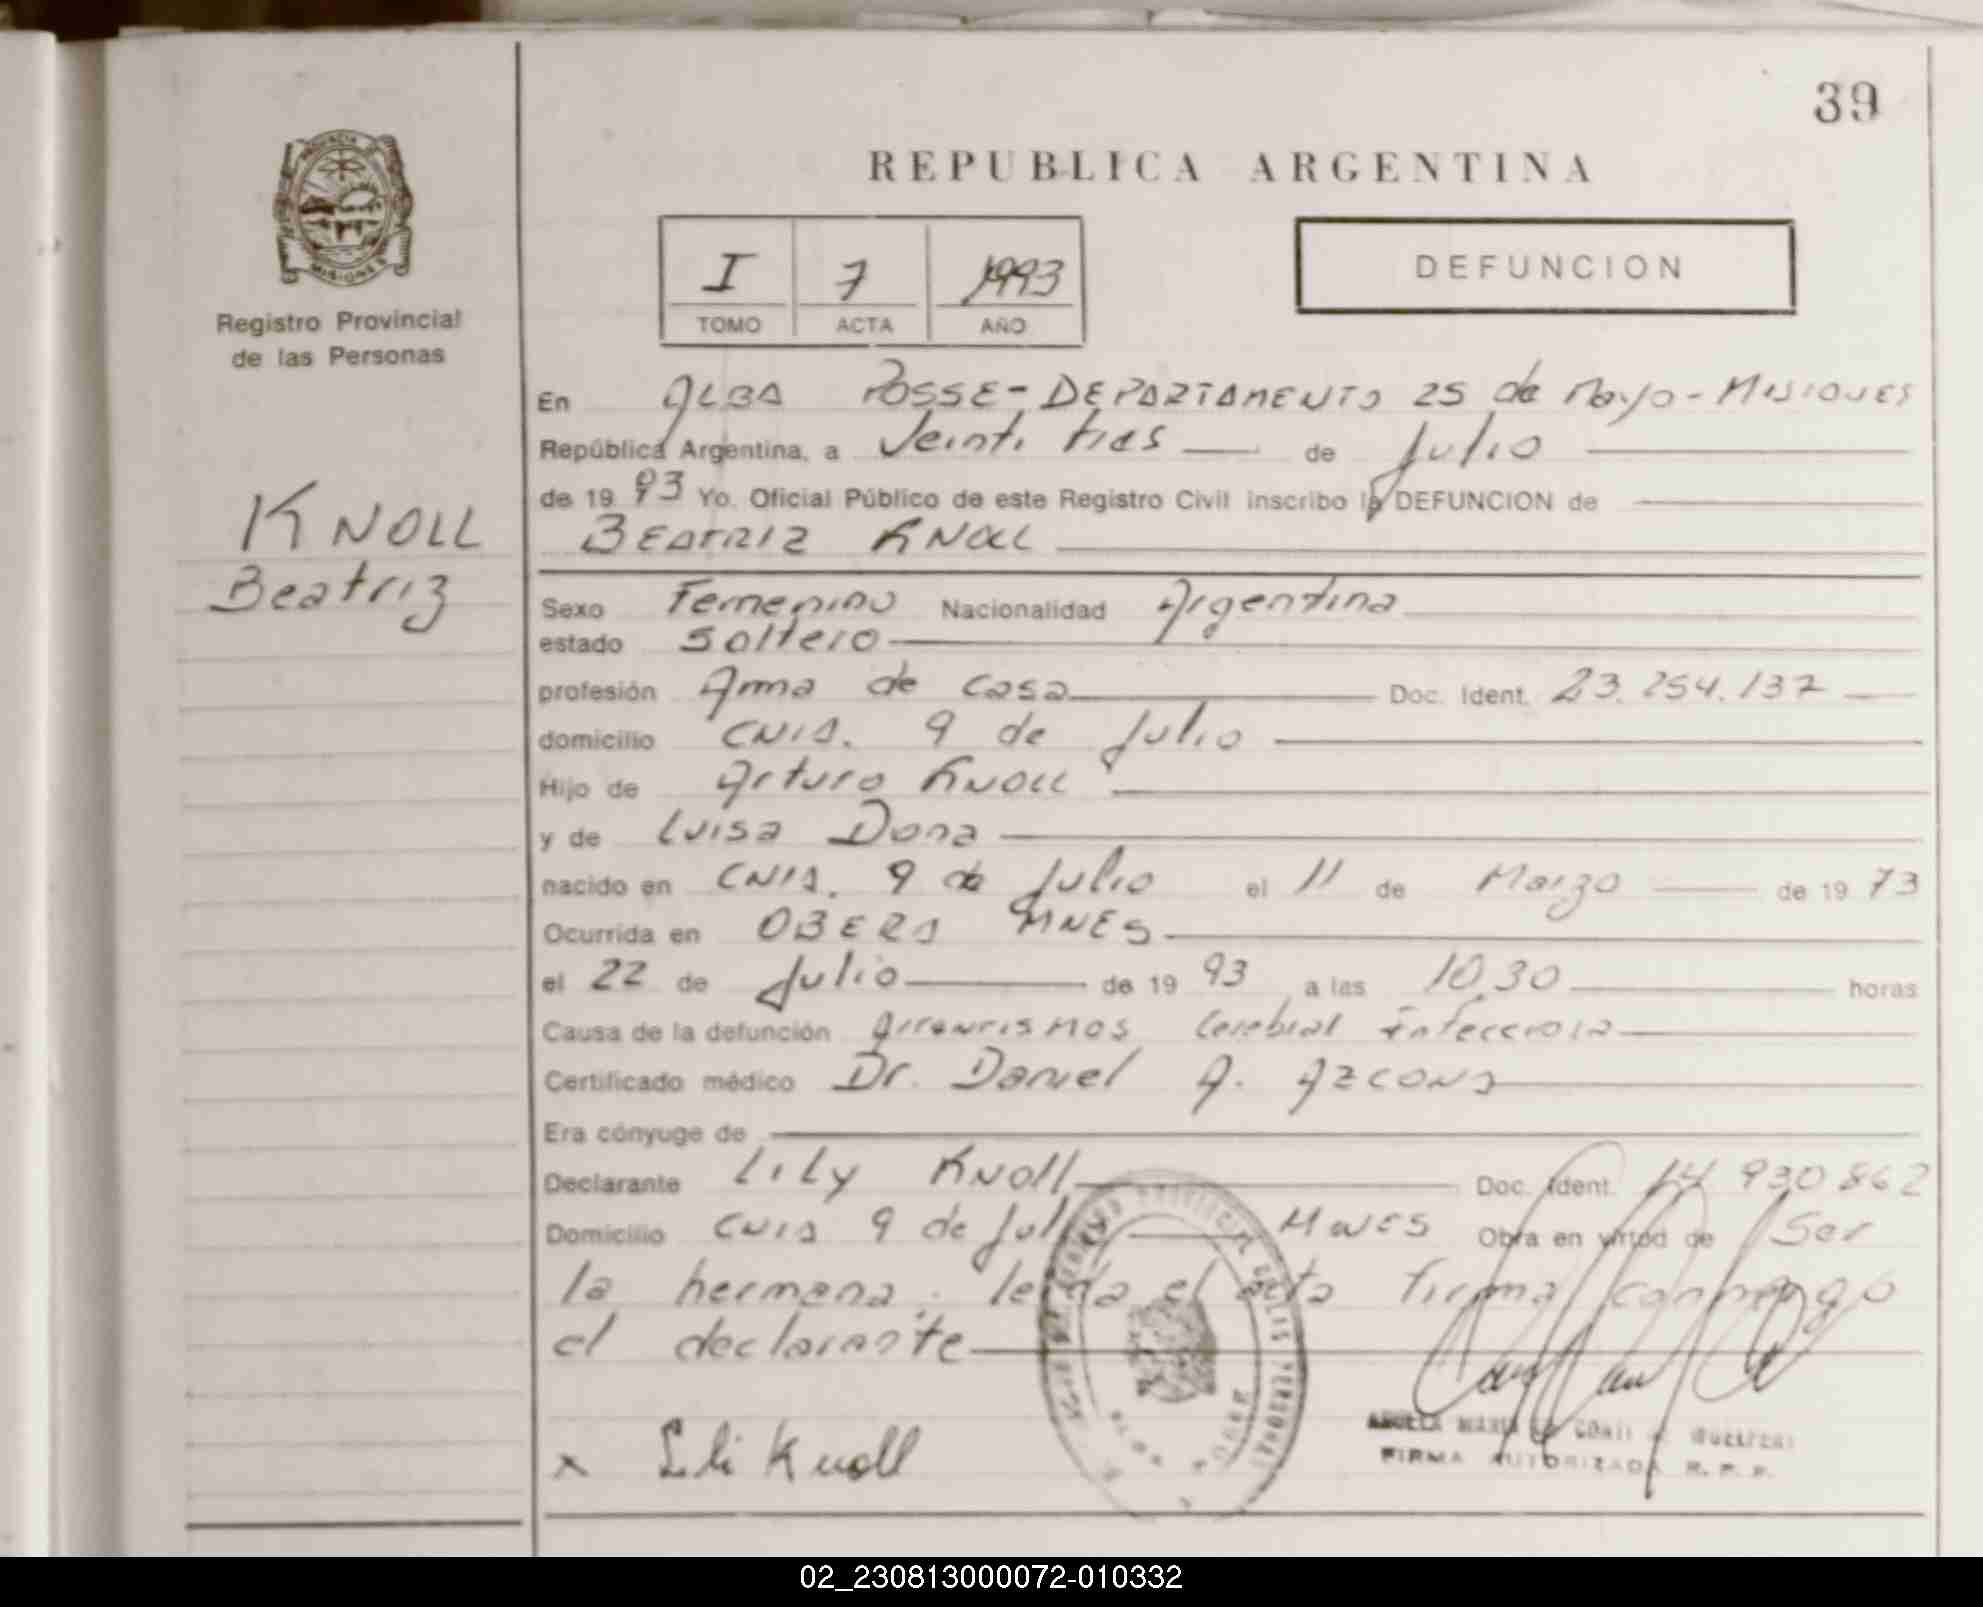 39
REPUBLICA ARGENTINA
PROVINCIA DE
MISIONES
Registro Provincial
de las Personas
I 7 1993
TOMO ACTA AÑO
DEFUNCION
En ALBA POSSE - DEPARTAMENTO 25 de Mayo - MISIONES
República Argentina, a Veinti tres de Julio
de 19 93 Yo. Oficial Público de este Registro Civil inscribo la DEFUNCION de
BEATRIZ KNOLL
KNOLL
Beatriz
Sexo Femenino Nacionalidad Argentina
estado soltero
profesión Ama de Casa Doc. Ident. 23.254.137
domicilio CNIA. 9 de Julio
Hijo de Arturo KNOLL
y de Luisa Dona
nacido en CNIA. 9 de Julio el 11 de Marzo de 19 73
Ocurrida en OBERA MNES
el 22 de Julio de 19 93 a las 10,30 horas
Causa de la defunción Cerebral Infecciosa
Certificado médico Dr. Daniel A. AZCONA
Era cónyuge de
Declarante Lily Knoll Doc. Ident. 14 930 862
Domicilio CNIA 9 de Julio MNES Obra en virtud de Ser
la hermana. leida el acta firma conmigo
el declarante
x Lili Knoll
FIRMA AUTORIZADA R. P. P.
02_230813000072-010332